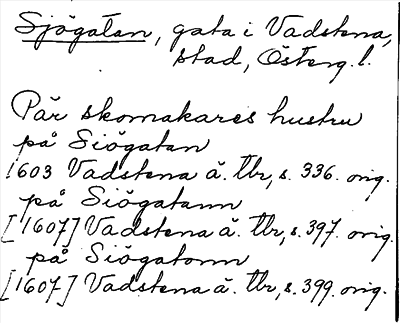 Sjögatan, gata i Vadstena,
stad, Österg. l.
Pär skomakares hustru
på Siögatan
1603 Vadstena ä. Tbr, s. 336. orig.
på Siögatann
[1607] Vadstena ä. Tbr, s. 397. orig.
på Siögatonn
[1607] Vadstena ä. Tbr, s. 399. orig.